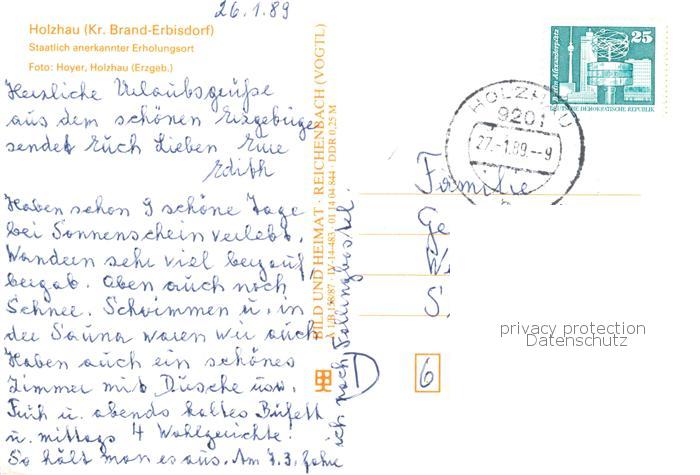 26.1.89
Holzhau (Kr. Brand-Erbisdorf)
Staatlich anerkannter Erholungsort
Foto: Hoyer, Holzhau (Erzgeb.)
Herzliche Urlaubsgrüße
aus dem schönen Erzgebirge
sendet Euch Lieben Eure
Edith
Haben schon 9 schöne Tage
bei Sonnenschein verlebt.
Wandern sehr viel bergauf,
bergab. Oben auch noch
Schnee. Schwimmen u. in
der Sauna waren wir auch
Haben auch ein schönes
Zimmer mit Dusche usw.
Früh u. abends kaltes Büfett
u. mittags 4 Wahlgerichte!
So hält man es aus. Am 7.3. fahre
ich nach Fallingbostel.
BILD UND HEIMAT · REICHENBACH (VOGTL)
A 1/B 156/87 · IV-14-483 · 01 14 04 844 · DDR 0,25 M
25
Berlin, Alexanderplatz
DEUTSCHE DEMOKRATISCHE REPUBLIK
HOLZHAU
9201
27.-1.89.--9
Familie
Ge
W
S.
D
6
privacy protection
Datenschutz